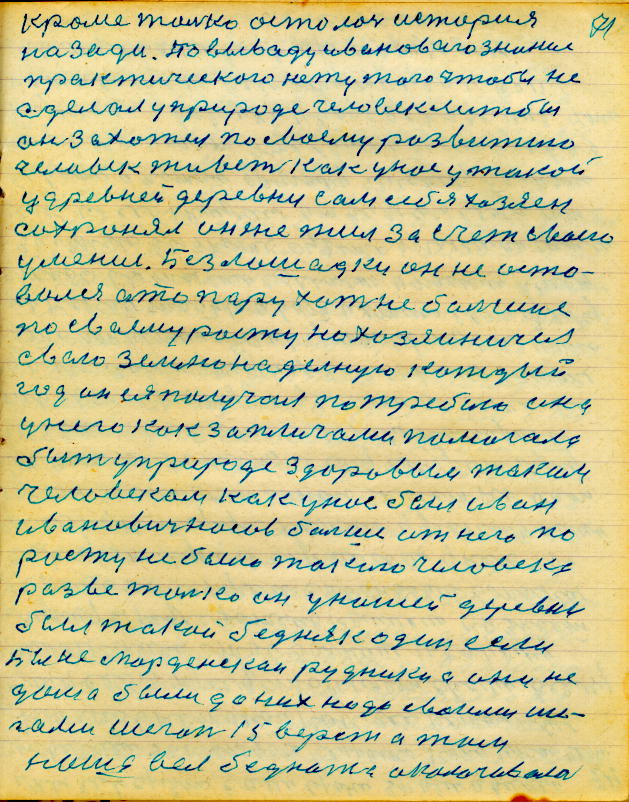 71
кроме только остолоп история
назади. По вываду ивановаго знания
практического нету того чтобы не
сделол у природе человек литбы
он захотел по своему развитию
человек живет как унас у такой
у древней деревни сам себя хозяен
сохронял он не жил за счет своего
умения. Без лошадки он не осто-
волся а то пару хоть не болшие
по своему росту но хозяиничел
сваю землю наделную каждый
год он ея получал потребила она
унего как за плечами помогала
быть у природе здоровым таким
человеком как унас был иван
иванович носов болше от него по
росту не было такого человека
разве только он у нашей деревне
был такой бедняк один если
бы не Марденскаи рудники а они не
дома были до них надо своими ша-
гами шегат 15 верст а там
наша вся беднота околачивала